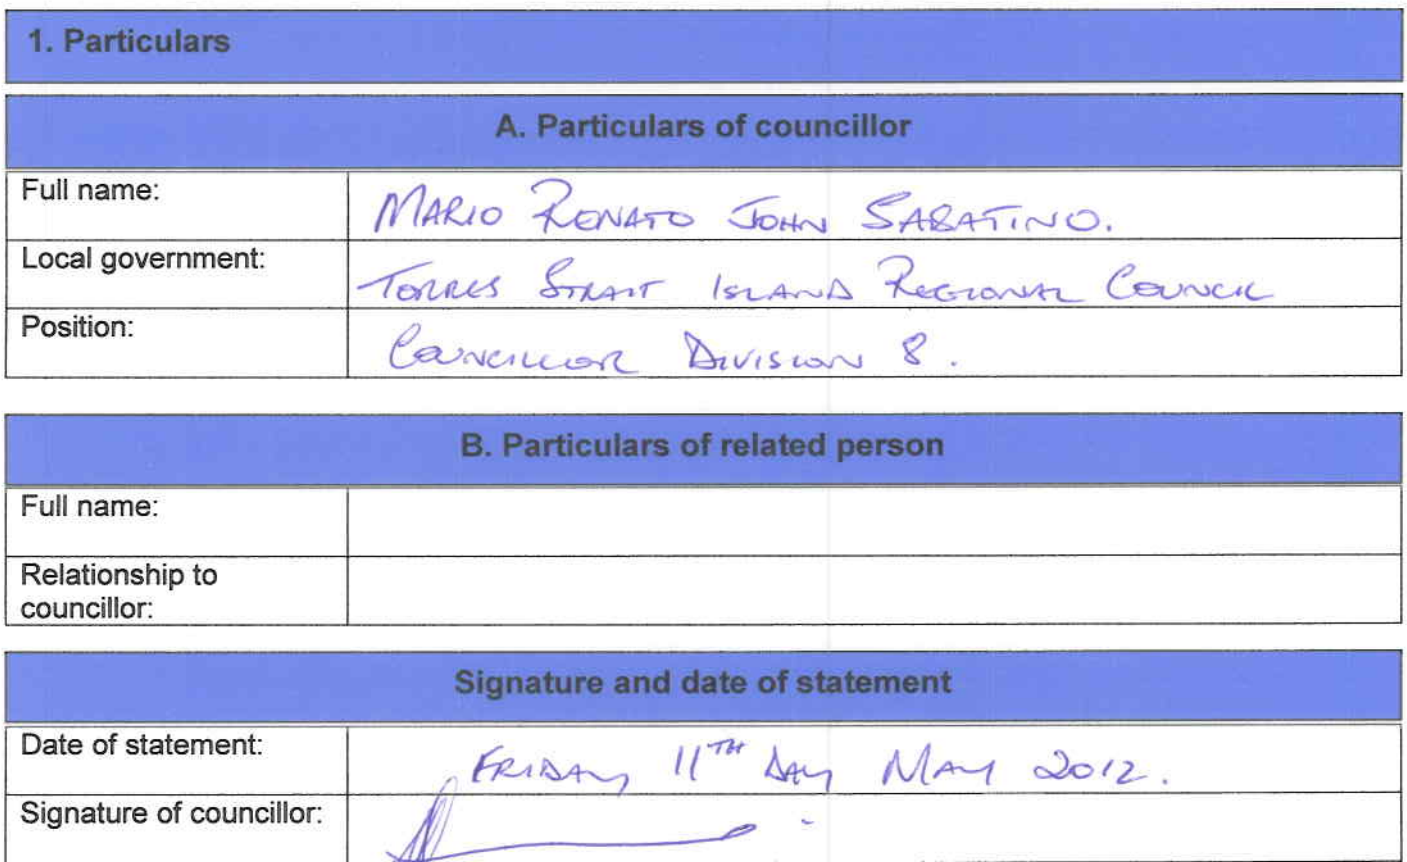 1. Particulars
A. Particulars of councillor
Full name: MARIO RENATO JOHN SABATINO.
Local government: TORRES STRAIT ISLAND REGIONAL COUNCIL
Position: COUNCILLOR DIVISION 8.
B. Particulars of related person
Full name:
Relationship to
councillor:
Signature and date of statement
Date of statement: FRIDAY 11TH DAY MAY 2012.
Signature of councillor: